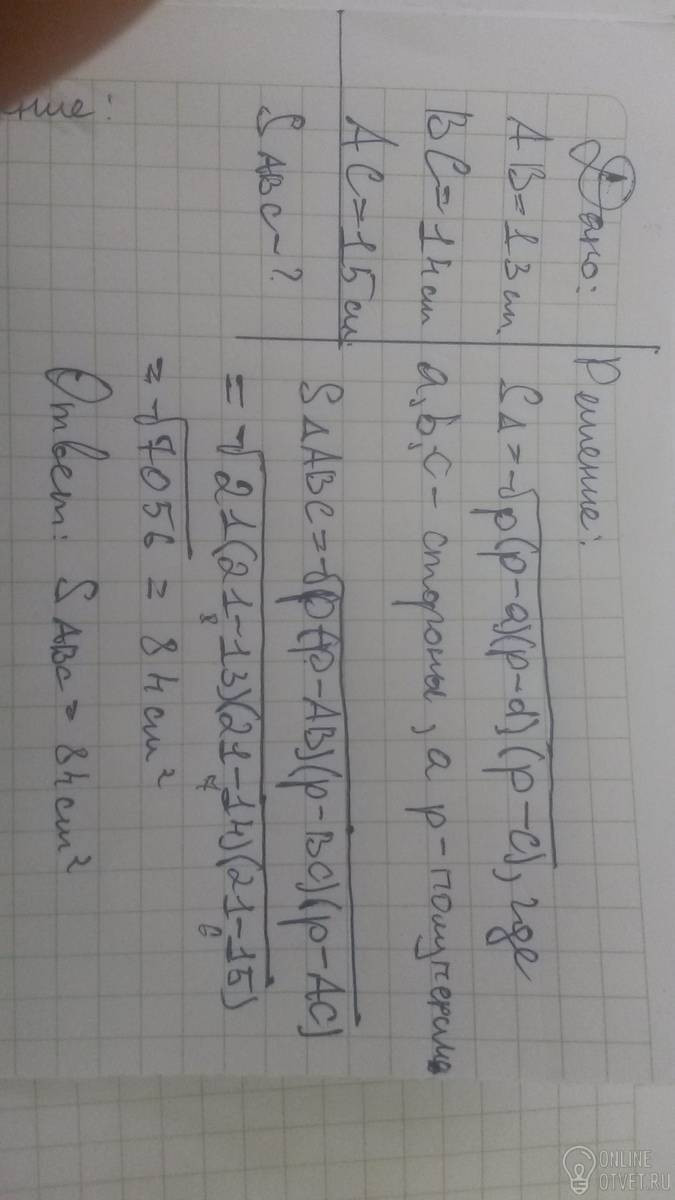 Дано:
AB=13см
BC=14см
AC=15см.
S ABC-?
Решение:
SΔ=√p(p-a)(p-b)(p-c), где
a,b,c - стороны, а p-полупериm
SΔABC=√p(p-AB)(p-BC)(p-AC)
=√21(21-13)(21-14)(21-15)
8 7 6
=√7056=84см²
Ответ: S ABC=84см²
ние:
ONLINE
OTVET.RU